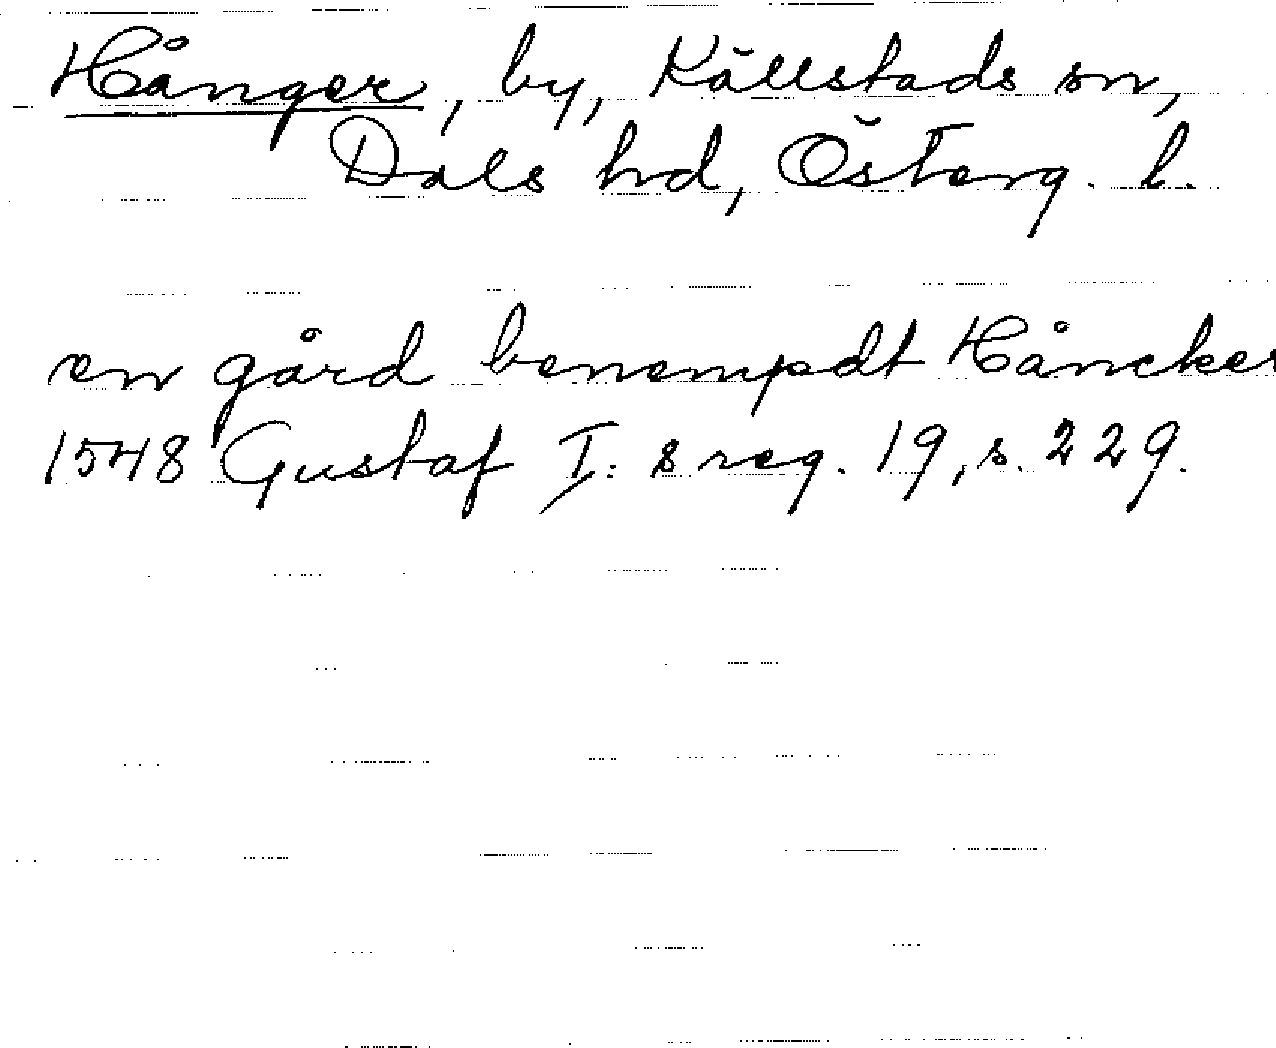 Hånger, by, Källstads sn,
Dals hd, Österg. l.
en gård benempdt Håncker
1548 Gustaf I:s reg. 19, s. 229.